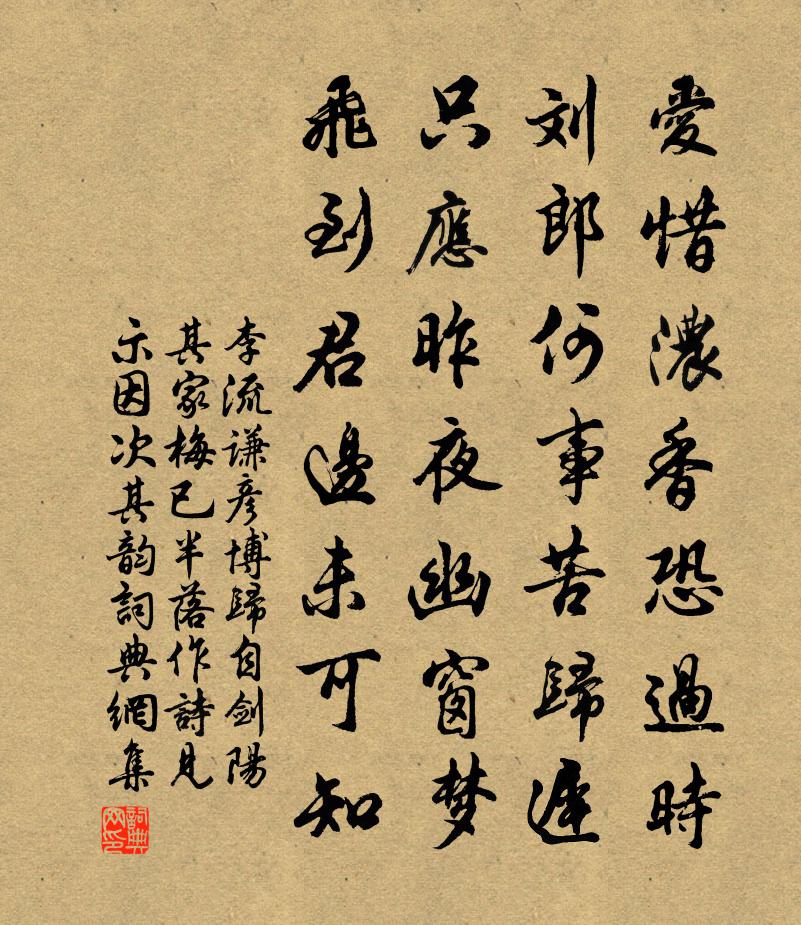 愛惜濃香恐過時
刘郎何事苦歸遲
只應昨夜幽窗梦
飛到君邊未可知
李流謙彦博歸自劍陽
其家梅已半落作詩見
示因次其韵詞典網集
詞典网印